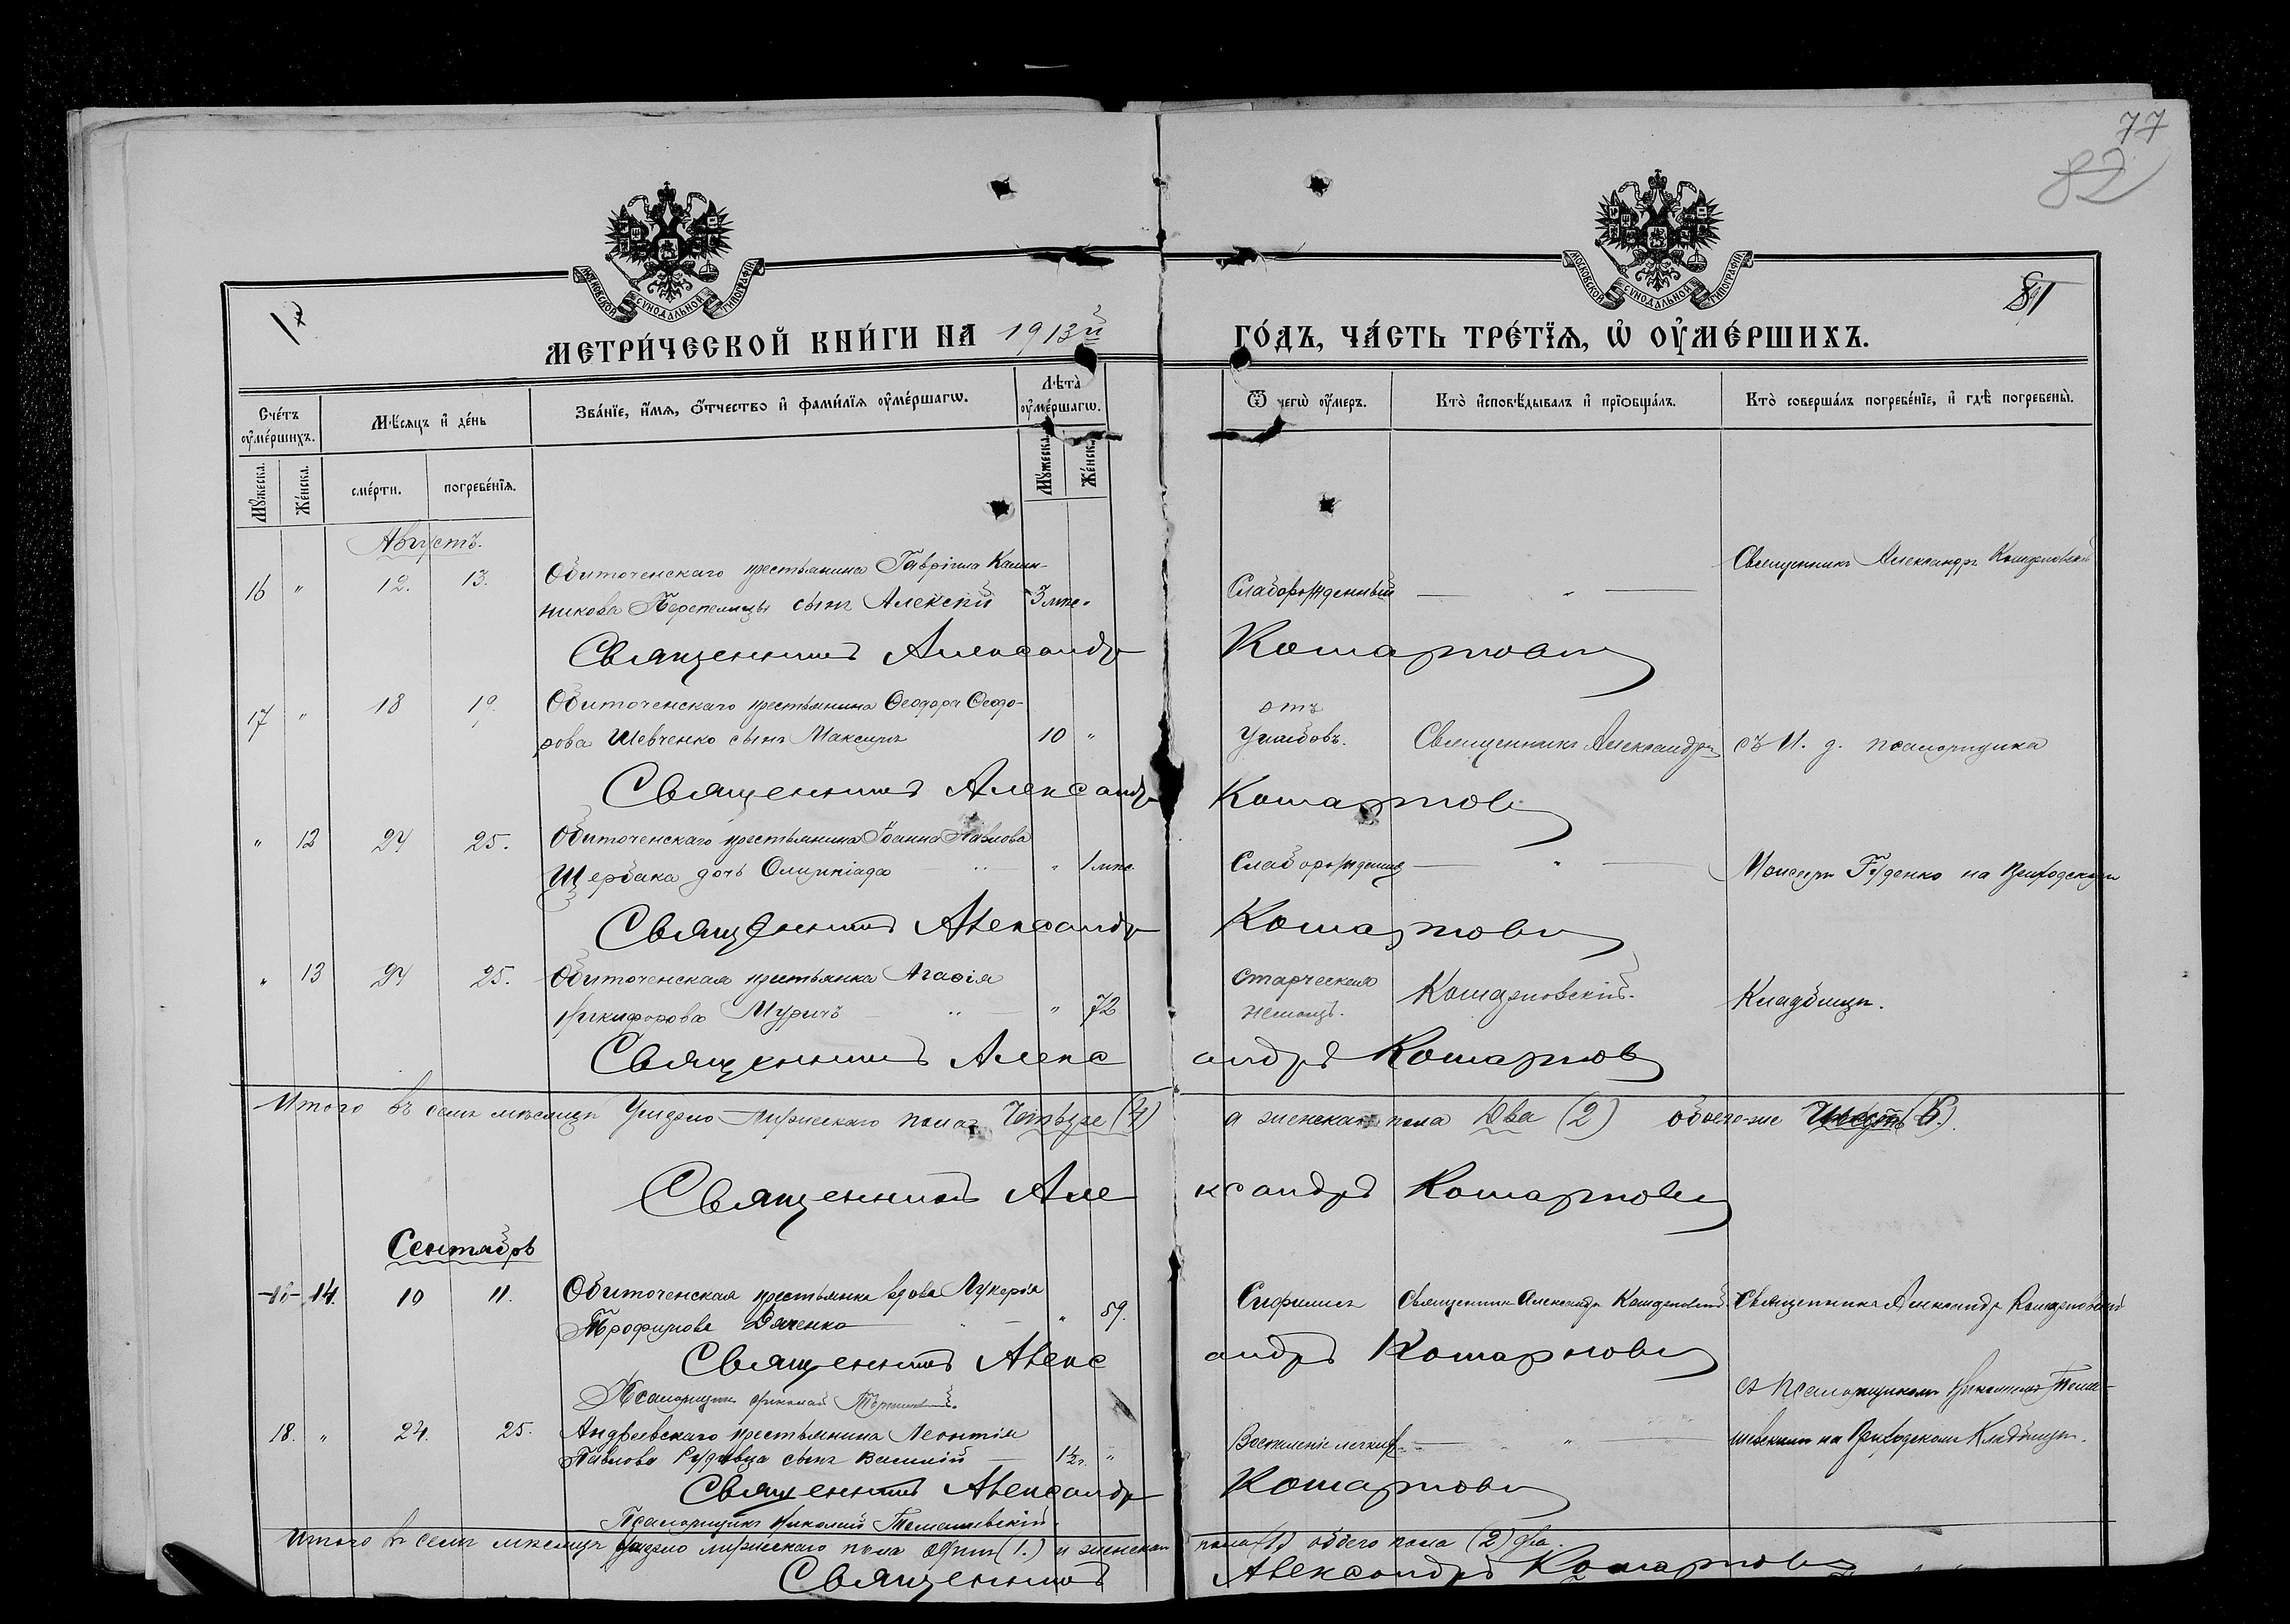 77
82
81
МОСКОВСКОЙ СѴНОДАЛЬНОЙ ТИПОГРАФІИ
МОСКОВСКОЙ СѴНОДАЛЬНОЙ ТИПОГРАФІИ
МЕТРИ́ЧЕСКОЙ КНИ́ГИ НА 1913й ГО́ДЪ, ЧА́СТЬ ТРЕ́ТЇѦ, Ѡ҆ ОУ҆МЕ́РШИХЪ.
Сче́тъ оу҆ме́ршихъ.
Мѣ́сяцъ и҆ де́нь
Зва́нїе, и҆́мѧ, ѻ҆́тчество и҆ фами́лїѧ оу҆ме́ршагѡ.
Лѣта̀ оу҆ме́ршагѡ.
Ѿ чегѡ̀ оу҆́меръ.
Кто̀ и҆сповѣ́дывалъ и҆ прїѡбща́лъ.
Кто̀ соверша́лъ погребе́нїе, и҆ гдѣ̀ погребены̀.
Мꙋ́жеска. Же́нска. сме́рти. погребе́нїѧ. Мꙋ́жеска. Же́нска.
Августъ.
16 " 12. 13. Обиточенскаго крестьянина Гавріила Калин-
никова Перепелицы сынъ Алексій 3 мѣс. Слаборожденный — " — Священникъ Александръ Кошарновскій
Священникъ Александръ Кошарновскій
17 " 18 19. Обиточенскаго крестьянина Ѳеодора Ѳеодо-
рова Шевченко сынъ Максимъ 10 " отъ
ушибовъ. Священникъ Александръ съ И. д. псаломщика
Священникъ Александръ Кошарновскій
" 12 24 25. Обиточенскаго крестьянина Іоанна Павлова
Щербака дочь Олимпіада " 1 мѣс. Слаборожденная — " — Гуденко на Приходскомъ
Священникъ Александръ Кошарновскій
" 13 24 25. Обиточенская крестьянка Агаѳія
Никифорова Мурычъ " 72 старческая
немощь. Кошарновскій. Кладбищѣ.
Священникъ Александръ Кошарновскій
Итого въ семъ мѣсяцѣ умерло мужескаго пола Четыре (4) а женскаго пола Два (2) обоего-же Шесть (6).
Священникъ Александръ Кошарновскій
Сентябрь
14. 10 11. Обиточенская крестьянка вдова Лукерія
Трофимова Дяченко " 59. Сифилисъ Священникъ Александръ Кошарновскій. Священникъ Александръ Кошарновскій
Священникъ Александръ Кошарновскій
Псаломщикъ Николай
съ Псаломщикомъ Николаемъ Тома-
18. " 24. 25. Андреевскаго крестьянина Леонтія
Павлова Рудавца сынъ Василій — 1½ г. " Воспаленіе легкихъ — " — шевскимъ на Приходскомъ Кладбищѣ.
Священникъ Александръ Кошарновскій
Псаломщикъ Николай Томашевскій.
Итого въ семъ мѣсяцѣ умерло мужескаго пола одинъ (1.) и женскаго пола (1) обоего пола (2) два.
Священникъ Александръ Кошарновскій